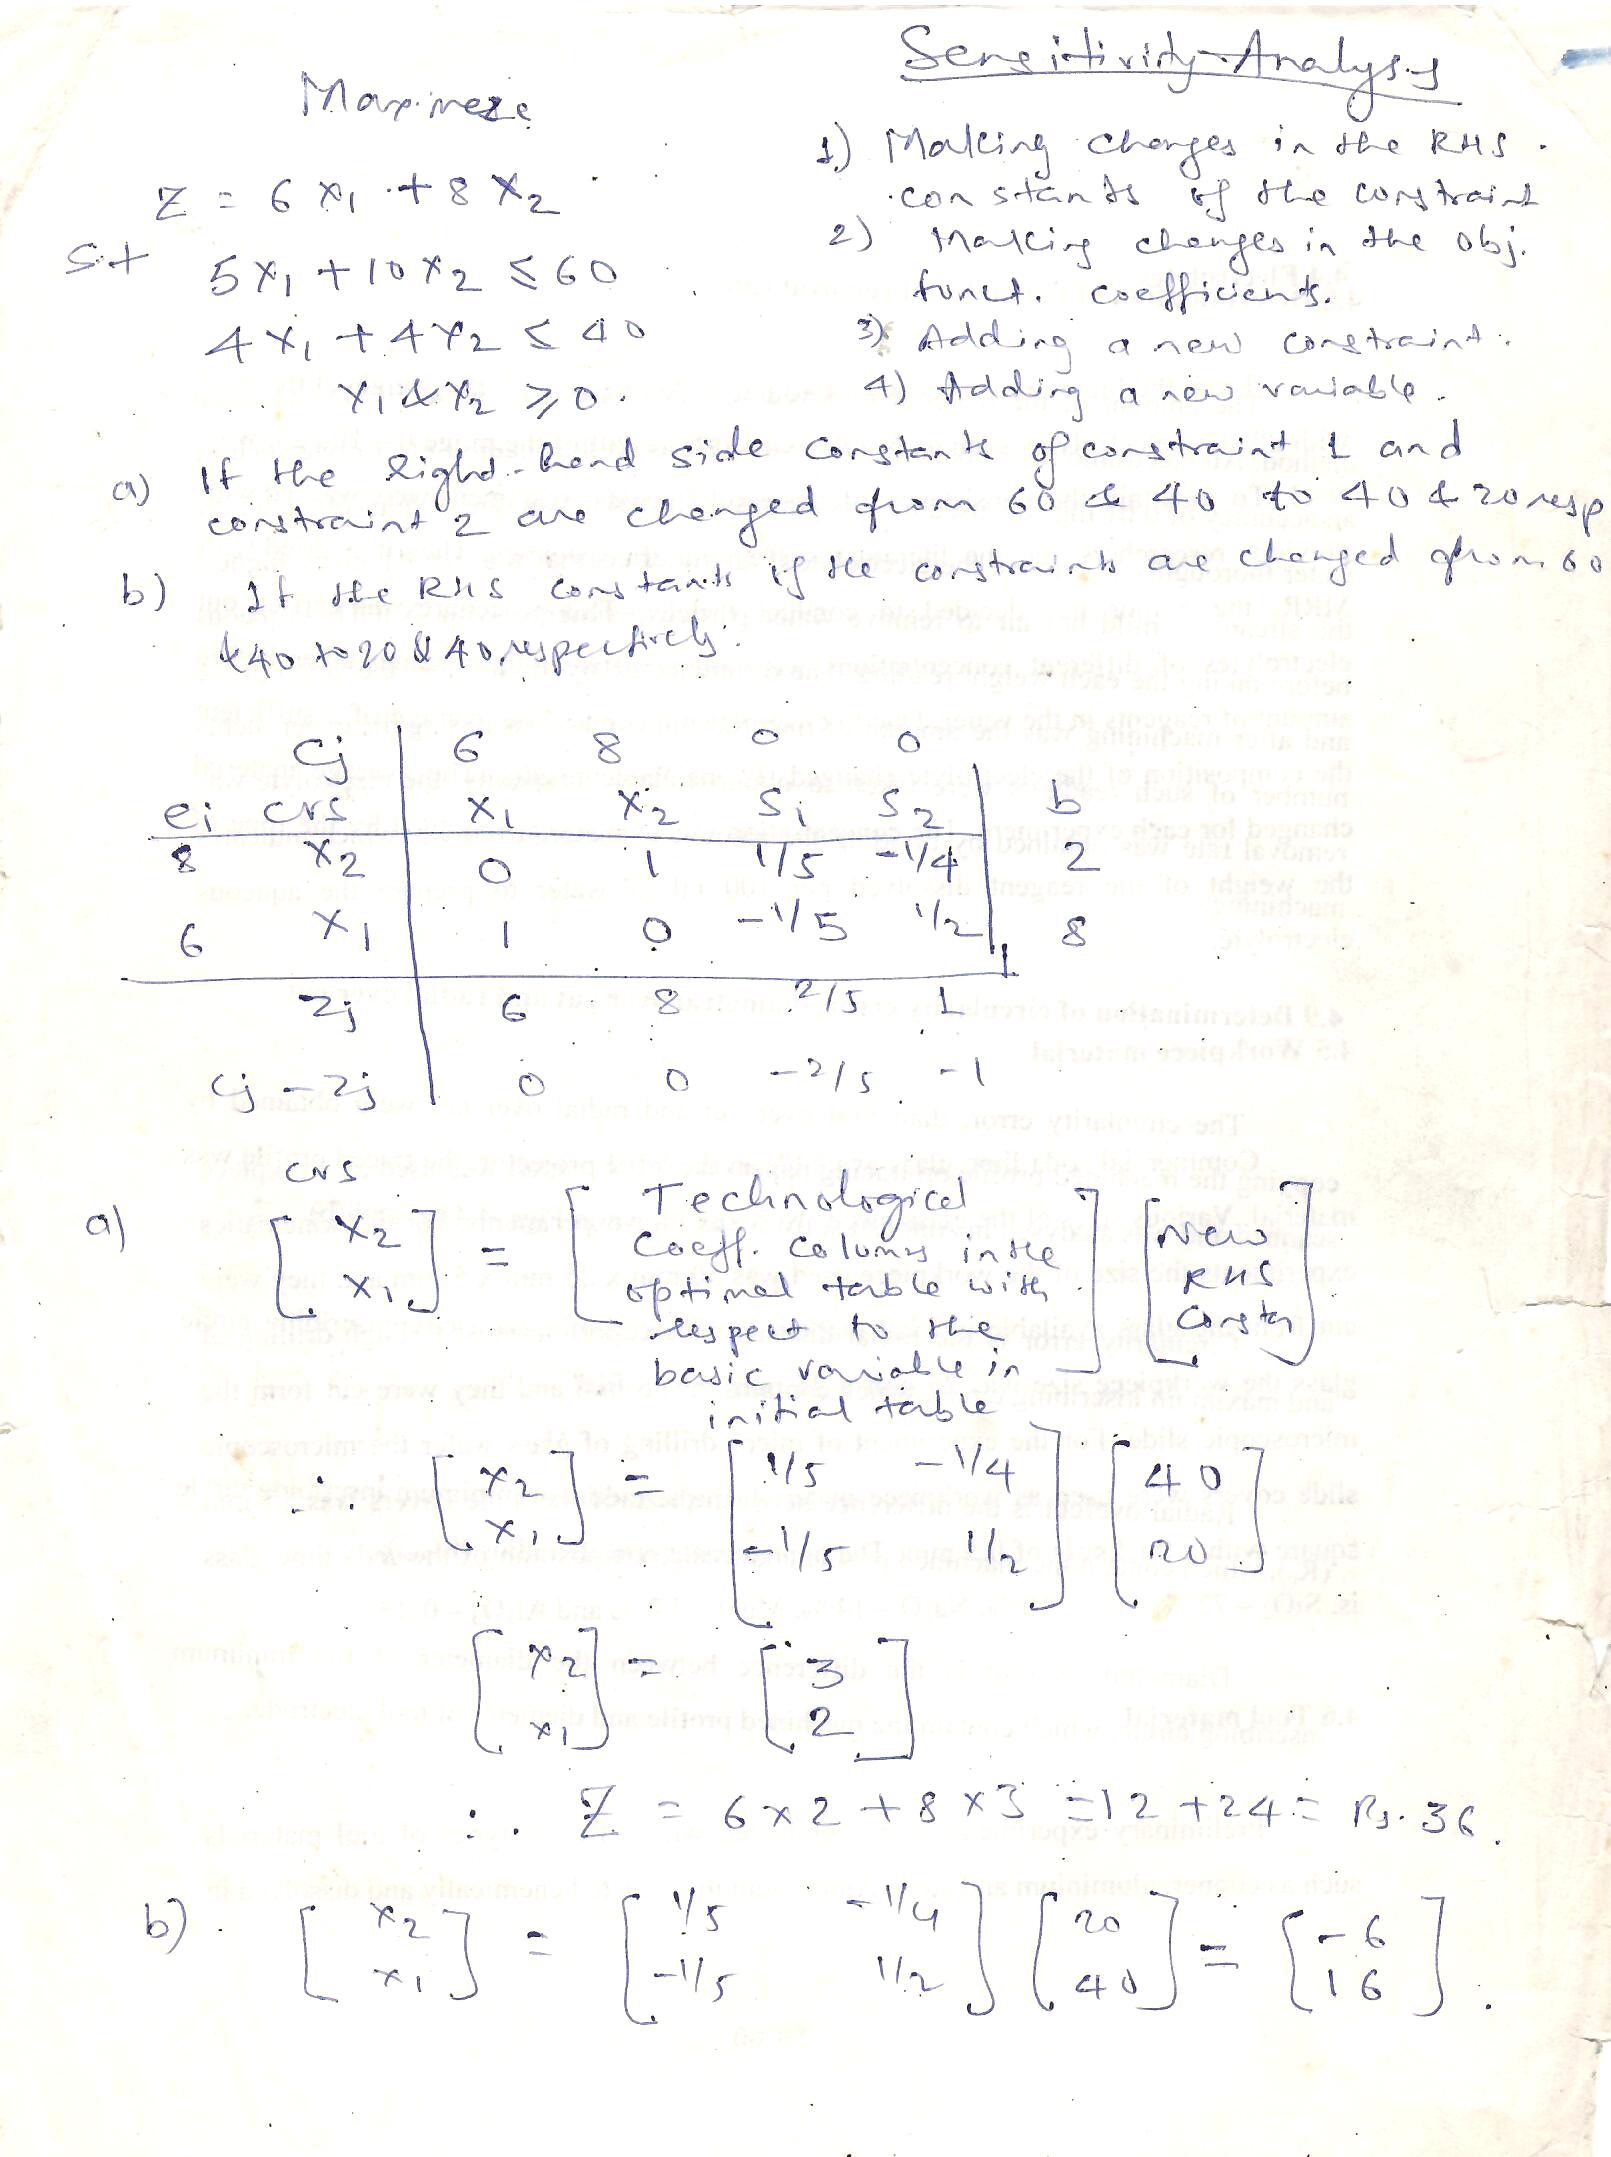 Sensitivity Analysis
Maximeze
Z = 6 X1 + 8 X2
S.t 5X1 + 10X2 ≤ 60
4X1 + 4X2 ≤ 40
X1 & X2 ≥ 0.
1) Making changes in the RHS.
constants of the constraint
2) Making changes in the obj.
funct. coefficients.
3) Adding a new constraint.
4) Adding a new variable.
a) If the Right-hand side constants of constraint 1 and
constraint 2 are changed from 60 & 40 to 40 & 20 resp
b) If the RHS constants of the constraints are changed from 60
& 40 to 20 & 40 respectively.
Cj 6 8 0 0
ei CVS X1 X2 S1 S2 b
8 X2 0 1 1/5 -1/4 2
6 X1 1 0 -1/5 1/2 8
Zj 6 8 2/5 1
Cj - Zj 0 0 -2/5 -1
CVS
a) [X2 X1] = [Technological
Coeff. Columns in the
optimal table with
respect to the
basic variable in
initial table] [New
RHS
Consts]
∴ [X2 X1] = [1/5 -1/4
-1/5 1/2] [40
20]
[X2 X1] = [3
2]
∴ Z = 6 x 2 + 8 x 3 = 12 + 24 = Rs. 36.
b) [X2 X1] = [1/5 -1/4
-1/5 1/2] [20
40] = [-6
16].